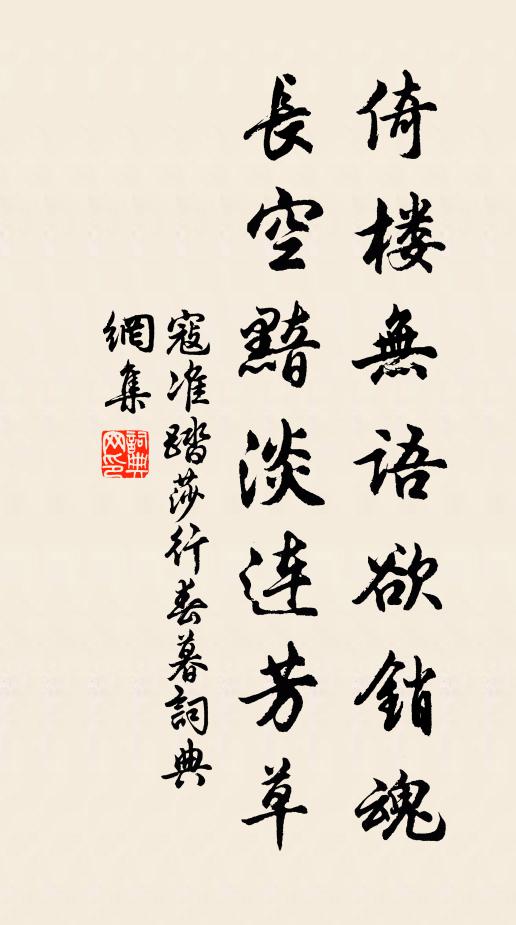 倚楼無語欲銷魂
長空黯淡連芳草
寇准踏莎行春暮詞典
網集
詞典
网印